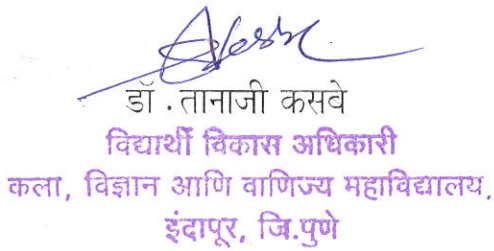 डॉ .तानाजी कसवे
विद्यार्थी विकास अधिकारी
कला, विज्ञान आणि वाणिज्य महाविद्यालय,
इंदापूर, जि.पुणे